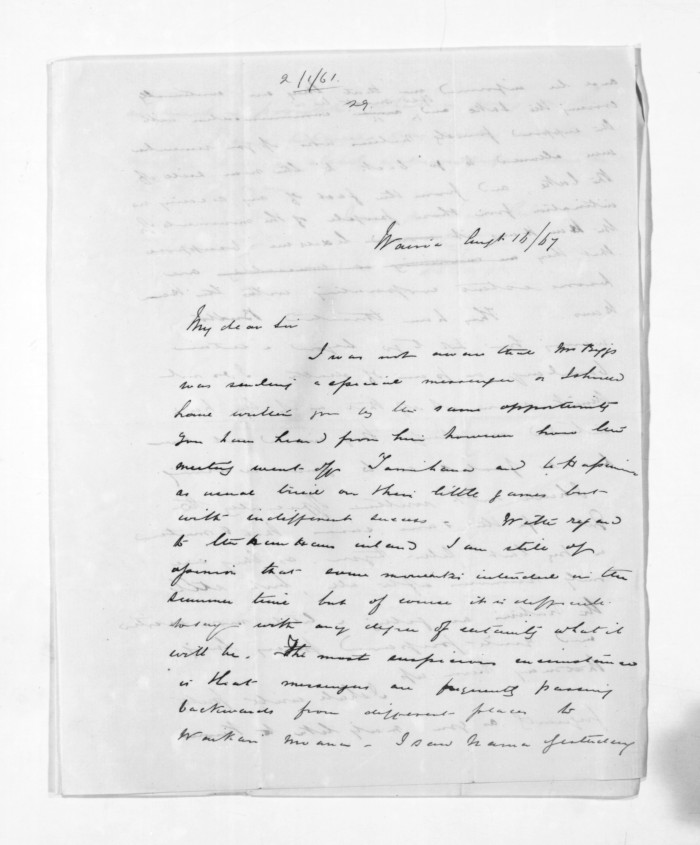 2/1/61.
29
Wairoa Augt 16/67
My dear Sir
I was not aware that Mr Biggs
was sending a special messenger or I should
have written you by the same opportunity
You have heard from him however how the
meeting went off Tamihana and
as usual tried on their little games but
with indifferent success With regard
to the Hau Haus inland I am still of
opinion that some move is intended in the
summer time but of course it is difficult
to say with any degree of certainty what it
will be. The most suspicious circumstance
is that messengers are frequently passing
backwards from different places to
Waikari Moana - I saw Nama yesterday